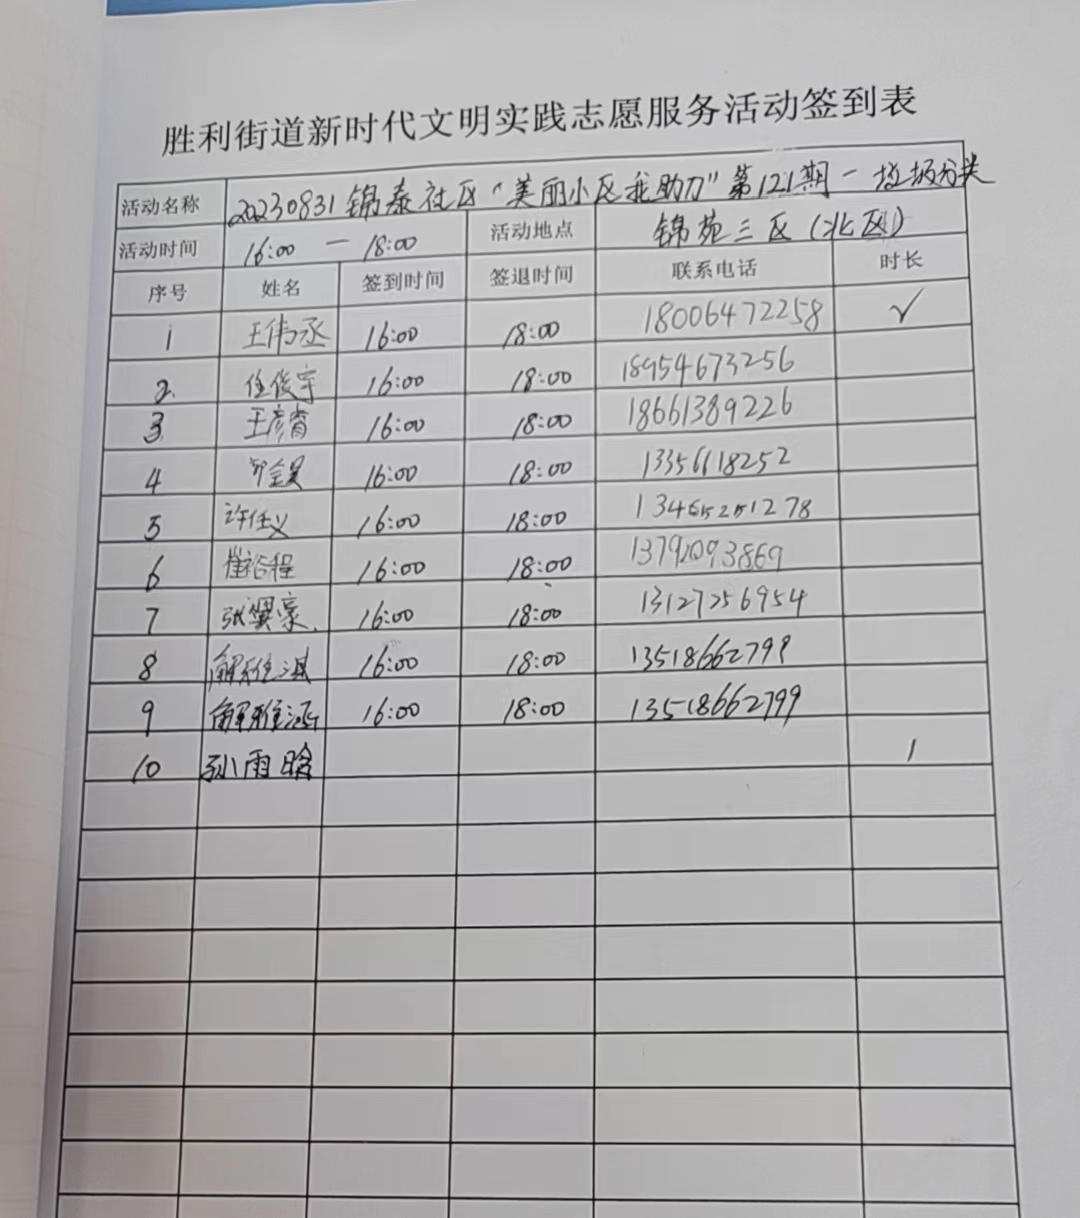 胜利街道新时代文明实践志愿服务活动签到表
活动名称 20230831 锦泰社区“美丽小区我助力”第121期－垃圾分类
活动时间 16:00 — 18:00 活动地点 锦苑三区(北区)
序号 姓名 签到时间 签退时间 联系电话 时长
1 王伟丞 16:00 18:00 18006472258 √
2 任俊宇 16:00 18:00 18954673256
3 王彦睿 16:00 18:00 18661389226
4 16:00 18:00 13356618252
5 许任义 16:00 18:00
6 崔裕程 16:00 18:00 13792093869
7 张翼豪 16:00 18:00 13127256954
8 解雅淇 16:00 18:00 13518662799
9 解雅涵 16:00 18:00 13518662799
10 孙雨晗 1